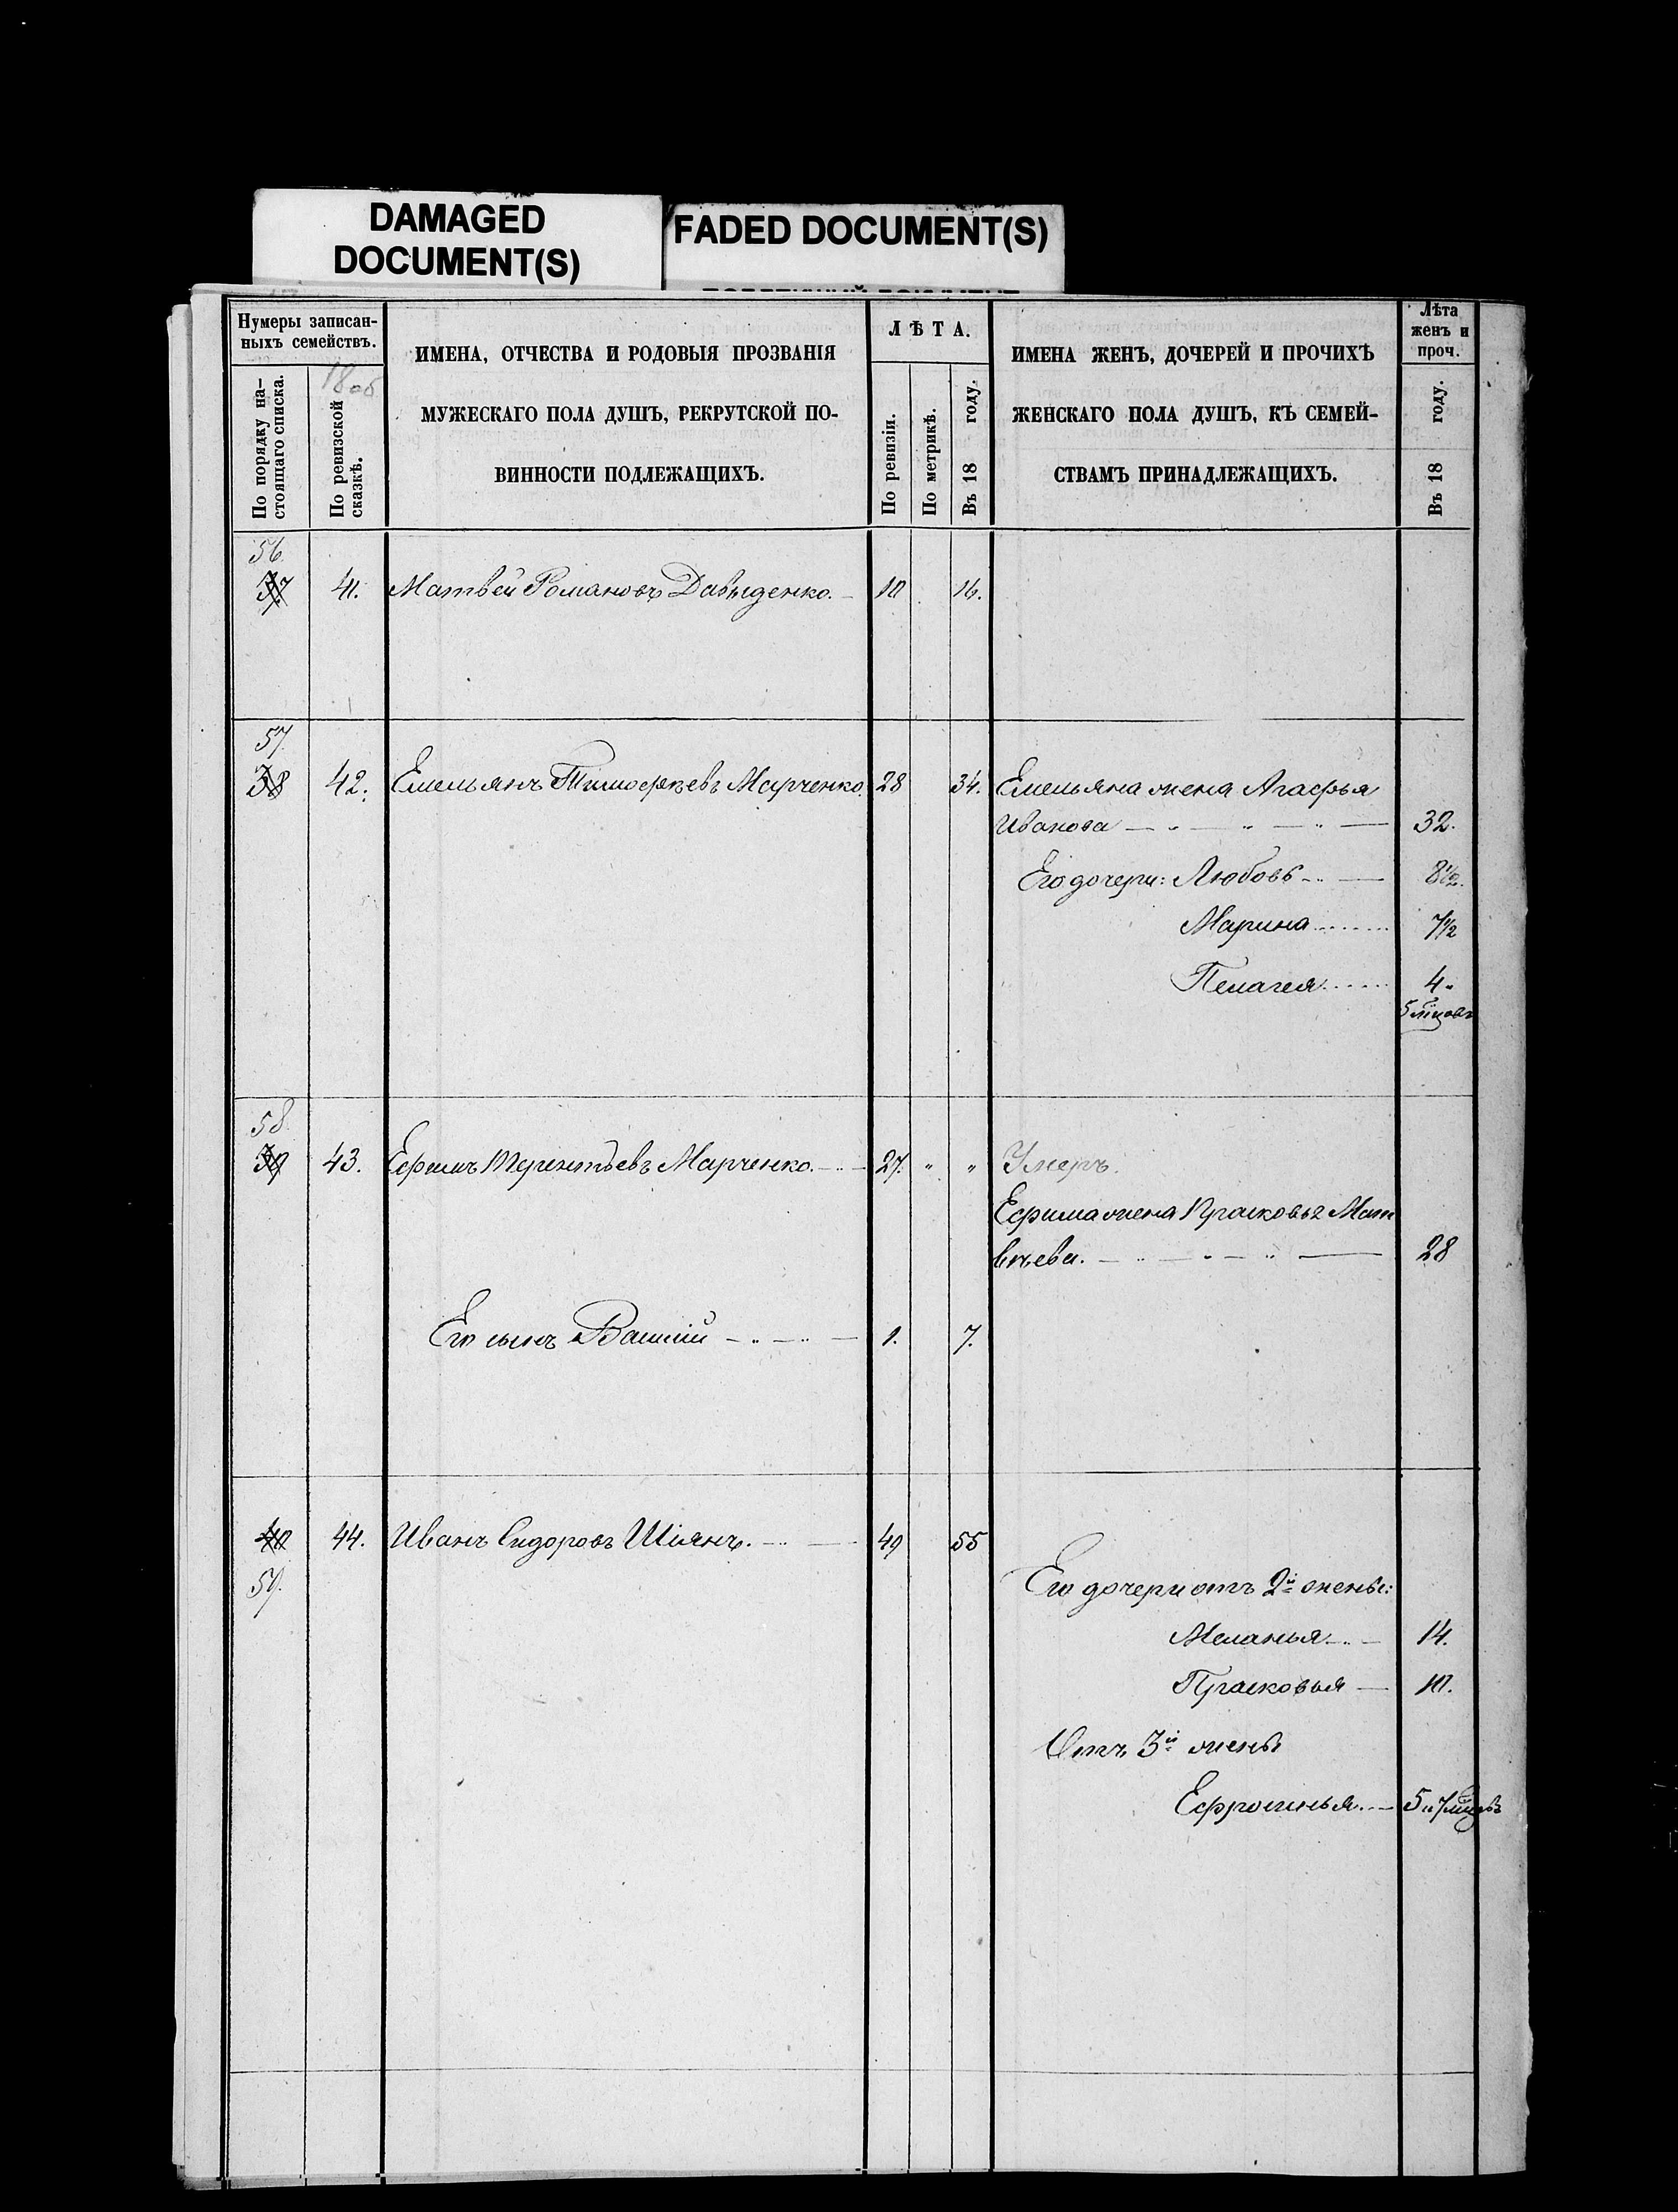 DAMAGED
DOCUMENT(S)
FADED DOCUMENT(S)
Нумеры записан-
ныхъ семействъ.
По порядку на-
стоящаго списка.
18об
По ревизской
сказкѣ.
ИМЕНА, ОТЧЕСТВА И РОДОВЫЯ ПРОЗВАНІЯ
МУЖЕСКАГО ПОЛА ДУШЪ, РЕКРУТСКОЙ ПО-
ВИННОСТИ ПОДЛЕЖАЩИХЪ.
ЛѢТА.
По ревизіи.
По метрикѣ.
Въ 18 году.
ИМЕНА ЖЕНЪ, ДОЧЕРЕЙ И ПРОЧИХЪ
ЖЕНСКАГО ПОЛА ДУШЪ, КЪ СЕМЕЙ-
СТВАМЪ ПРИНАДЛЕЖАЩИХЪ.
Лѣта
женъ и
проч.
Въ 18 году.
56.
37 41. Матвей Романовъ Давыденко. 10 16.
57.
38 42. Емельянъ Тимофеевъ Марченко. 28 34. Емельяна жена Агафья
Иванова 32.
Его дочери: Любовь 8½.
Марина 7½
Пелагея 4 "
5 мѣцовъ
58.
39 43. Ефимъ Терентьевъ Марченко. 27. " " Умеръ.
Ефима жена Прасковья Мат
вѣева. 28
Его сынъ Василій 1. 7.
40 44. Иванъ Сидоровъ Шіянъ. 49 55
59. Его дочери отъ 2й жены:
Меланья 14.
Прасковья 10.
Отъ 3й жены
Ефросинья 5 " 7 мѣцовъ